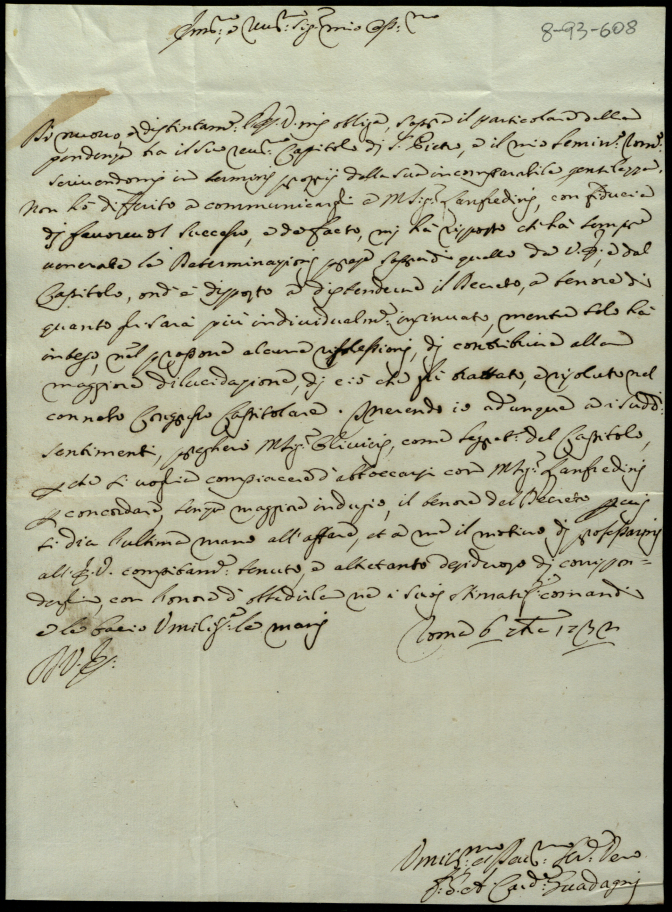 8-93-608
Em.º e Rev.º Sig.r mio Oss.mo
Di nuovo, e distintam.e l'E.V. mi obliga, sopra il particolare della
pendenza tra il suo rev.mo Capitolo di S. Pietro, e il mio Semin.o Rom.o
scrivendomi in termini proprij della sua incomparabile gentilezza,
Non hò differito a communicarli a Msig.r Lanfredini, con fiducia
di favorevol successo, e de facto, mi hà risposto ch'hà sempre
venerate le Determinazioni prese sopra di quello da V.E., e dal
Capitolo, ond'è disposto a distendere il Decreto, a tenore di
quanto gli sarà più individualm.e insinuato, mentre solo hà
inteso, nel proporre alcune riflessioni, di contribuire alla
maggiore dilucidazione, di ciò che fù trattato, e risoluto nel
connoto Congresso Capitolare. Aderendo io adunque a i sudd.i
sentimenti, pregherò Msig.r Olivieri, come Segret.o del Capitolo,
perche si voglia compiacere d'abboccarsi con Msig.r Lanfredini
per concordare, senza maggiore indugio, il tenore del Decreto, perche
si dia l'ultima mano all'affare, et a me il motivo di professarmi
all'E.V. compitam.e tenuto, e altretanto desideroso di corrispon-
derle, con l'onore d'obbedirla ne i suoi stimatis.i comandi
e le bacio Umilis.e le mani
Roma 6 7bre 1732
D.V.E.
Umiliss.mo et Dev.mo Ser.r Vero
F. G. A. Card. Guadagni